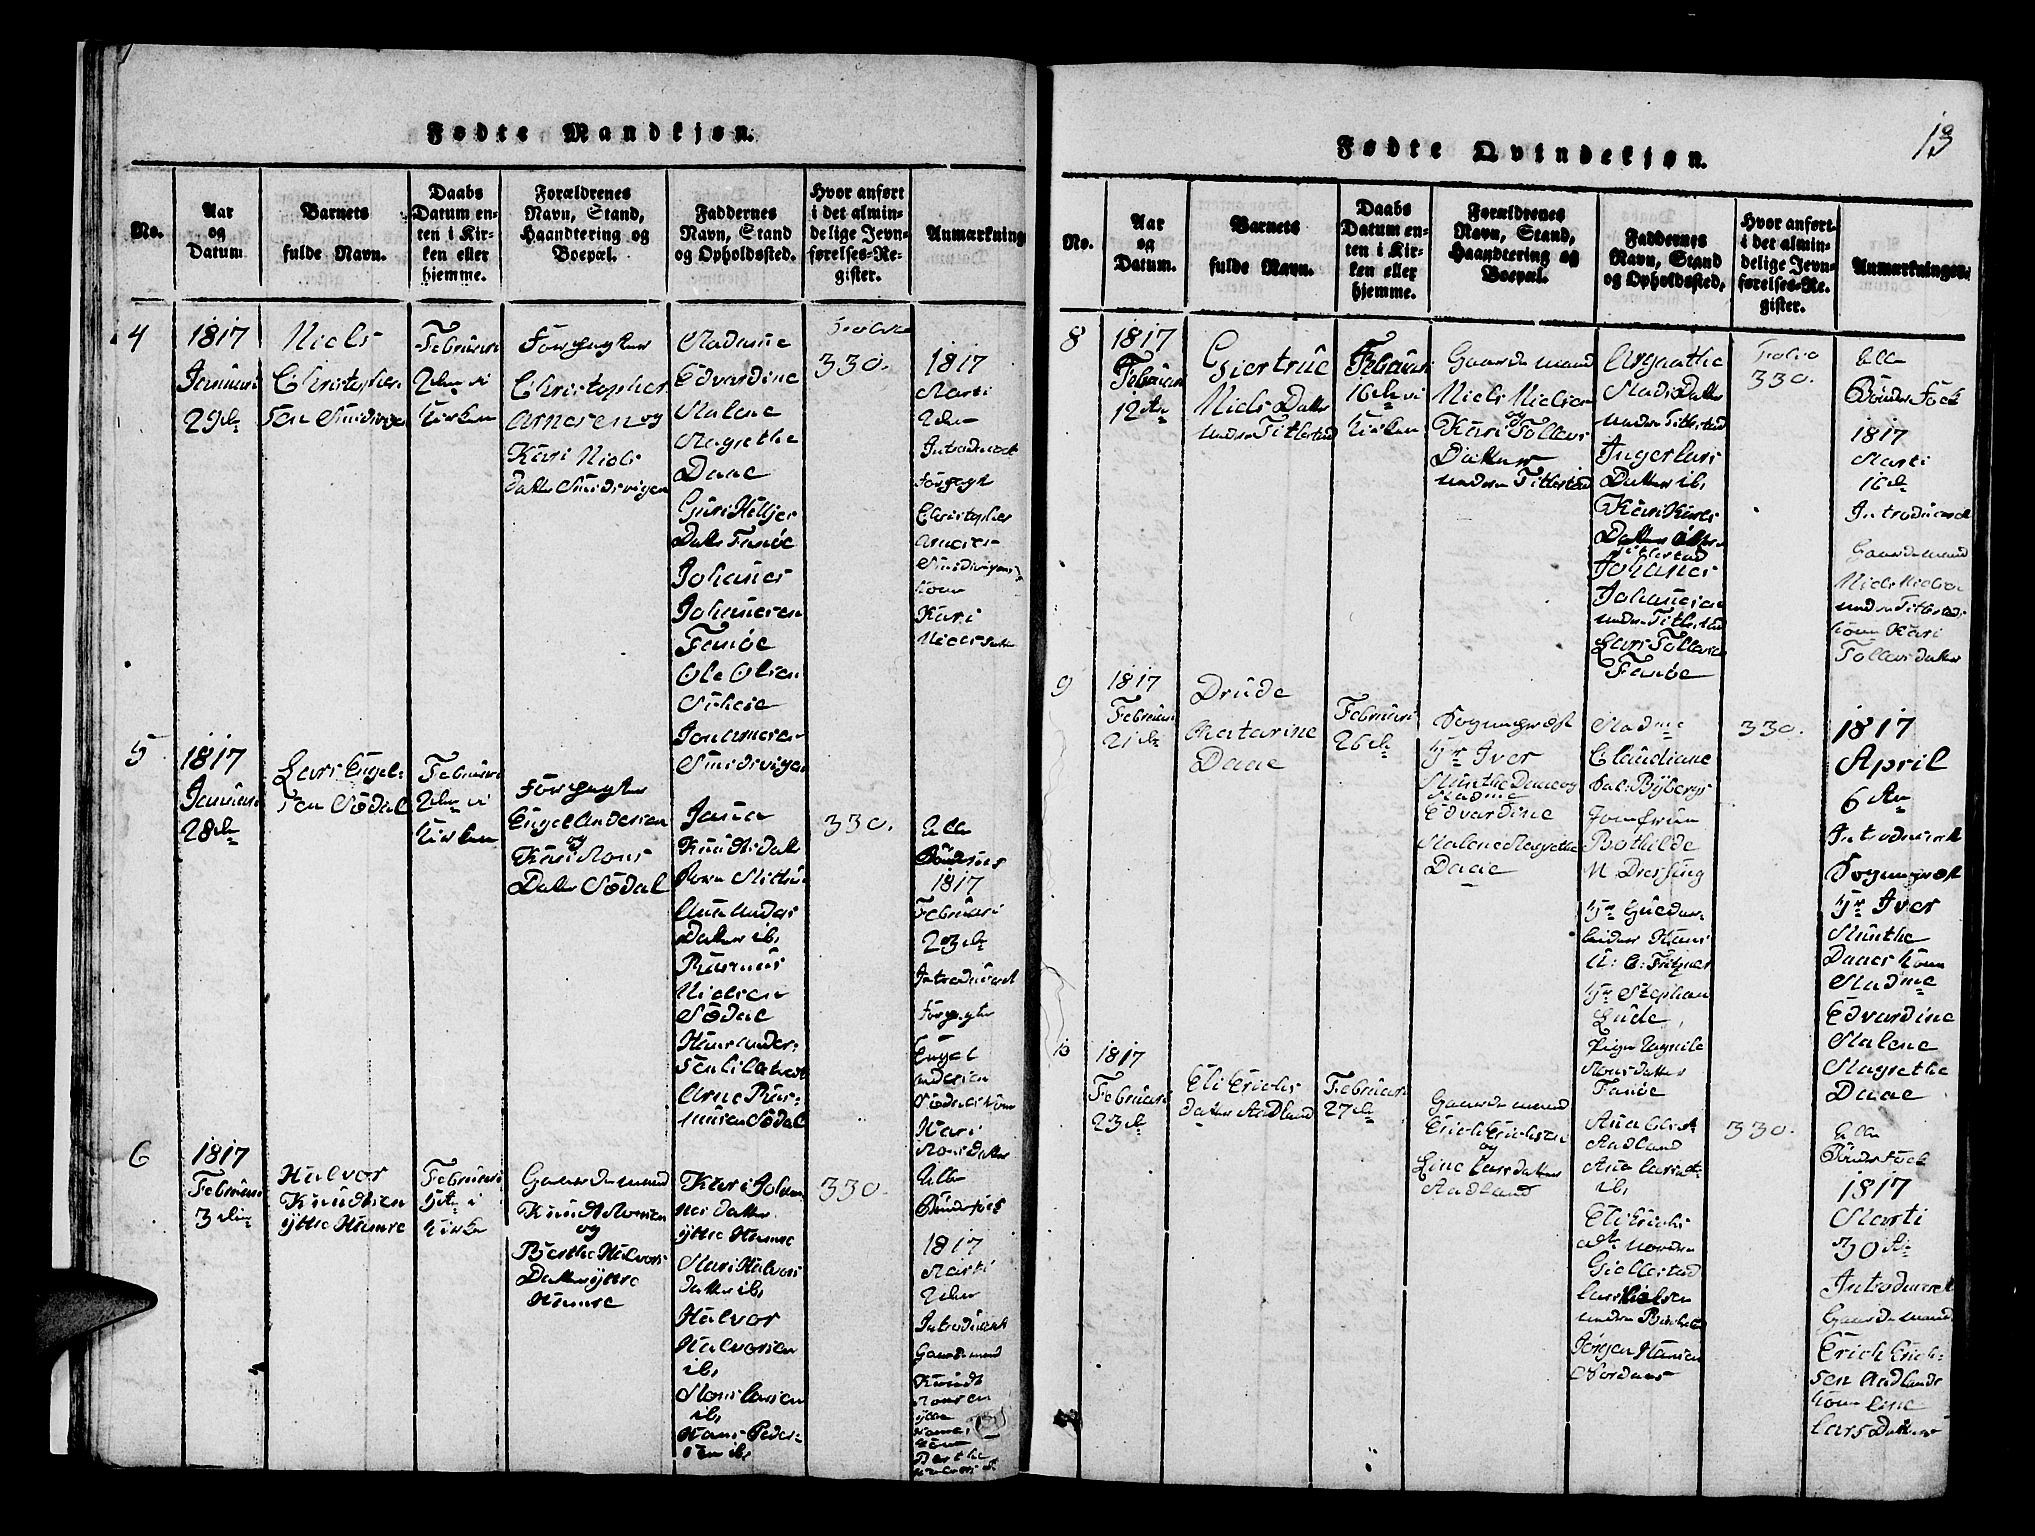 Fødte Mandkjøn.
No.
Aar
og
Datum
Barnets
fulde Navn.
Daabs
Datum en-
ten i Kir-
ken eller
hjemme.
Forældrenes
Navn, Stand,
Haandtering og
Boepæl.
Faddernes
Navn, Stand
og Opholdssted.
Hvor anført
i det almin-
delige Jevn-
førelses-Re-
gister.
Anmærkning
4
1817
Januari
29de
Niels
Christopher
Sen Smidsvigen
Februari
2den i
Kirken
Forpagter
Christopher
Arnesen og
Kari Niels
datter Smidsvigen
Madame
Edvardine
Malene
Magrethe
Daae
Guri
Datter Fanøe
Johanes
Johanesen
Fanøe
Ole Olsen
Jon Arnesen
Smidsvigen
330.
1817
Marti
2den
Introduceret
Forpagt
Christopher
Arnesen
Smidsvigens
kone
Kari
Niels datter
5
1817
Januari
28de
Lars Engel-
sen Sødal
Februari
2den i
Kirken
Forpagter
Engel Andersen
og
Kari Mons
Datter Sødal
Knudts datt
Anna Anders
Datter ib,
Rasmus
Nielsen
Sødal
Hans Ander-
Arne Ras-
musen Sødal
330.
Alle
Bønderfolk
1817
Februari
23de
Introduceret
Forpagter
Engel
Andersen
Sødals kone
Kari
Mons datter
6
1817
Februari
3die
Halvor
Knudtsen
yttre Humre
Februari
i
Kirken
Gaardemand
Knudt Monsen
og
Berthe Halvors
Datter yttre
Humre
Kari Johan-
nes datter
yttre Humre
Mari Halvors
datter ib,
Halvor
Halvorsen
ib,
Mons Larsen
ib,
Hans Peder-
sen ib,
330.
Alle
Bønderfolk
1817
Marti
2den
Introduceret
Gaardemand
Knudt
Monsen
yttre
Humres
kone
Berthe
Halvors d
Fødte Qvindekjøn.
13
No.
Aar
og
Datum.
Barnets
fulde Navn.
Daabs
Datum en-
ten i Kir-
ken eller
hjemme.
Forældrenes
Navn, Stand,
Haandtering og
Boepæl.
Faddernes
Navn, Stand
og Opholdssted.
Hvor anført
i det almin-
delige Jevn-
førelses-Re-
gister.
Anmærkninger.
8
1817
Februari
12te
Giertrue
Niels Datter
under Titlestad
Februari
16de i
Kirken
Gaardemand
Niels Nielsen
og
Kari Tollevs
Datter
under Titlestad
Argaathe
Mads Datter
under Titlestad
Inger Lars
Datter ib,
Kari
Datter
Titlestad
Johanes
Johanesen
under Titlestad
Lars Tollevsen
Fanøe
Folio
330.
Alle
Bønder Folk
1817
Marti
16de
Introduceret
Gaardemand
Niels Nielsen
under Titlestads
kone Kari
Tollevs datter
9
1817
Februari
21de
Drude
Katarine
Daae
Februari
26de
Sognepræst
Hr Iver
Munthe Daae og
Madme
Edvardine
Malene Magrethe
Daae
Madme
Claudiane
Sal: Rybergs
Jomfrue
Bothilde
M. Dressing
Hans
Hr Stephan
Lude,
Pige
Mons datter
Fanøe
330.
1817
April
6te
Introduceret
Sognepræst
Hr Iver
Munthe
Daaes kone
Madme
Edvardine
Malene
Magrethe
Daae
10
1817
Februari
23de
Eli Erichs
datter Aadland
Februari
27de
Gaardemand
Erich Erichsen
og
Line Lars datter
Aadland
Ana
Aadland
Ana Lars dt
ib,
Eli Erichs
Giellestad
Lars Nielsen
under
Jørgen Hansen
330.
Alle
Bønderfolk
1817
Marti
30te
Introduceret
Gaardemand
Erich Erich-
sen Aadlands
kone Line
Lars Datter